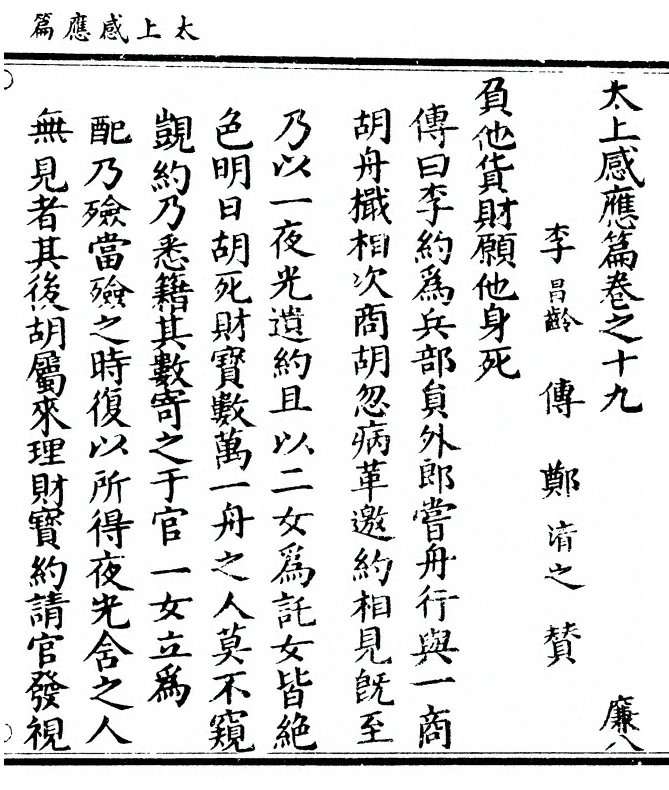 太上感應篇
太上感應篇卷之十九
廉八
李昌齡傳鄭清之贊
負他貨財願他身死
傳曰李約爲兵部員外郎嘗舟行與一商
胡舟檝相次商胡忽病革邀約相見旣至
乃以一夜光遺約且以二女爲託女皆絶
色明日胡死財寶數萬一舟之人莫不窺
覬約乃悉籍其數寄之于官一女立爲
配乃殮當殮之時復以所得夜光含之人
無見者其後胡屬來理財寶約請官發視